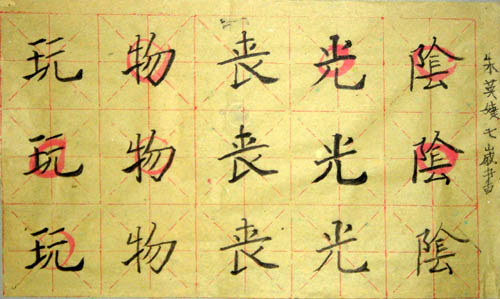 玩物丧光陰
玩物丧光陰
玩物丧光陰
朱英七歲書